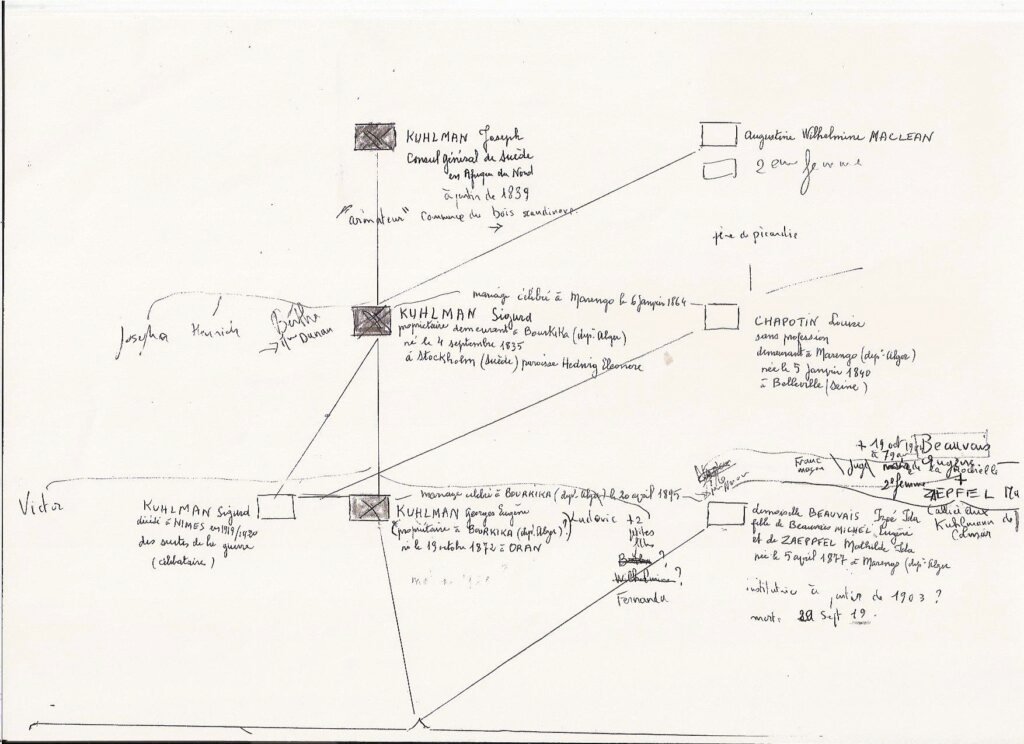 KUHLMAN Joseph
Consul général de Suède
en Afrique du Nord
à partir de 1839
"armateur" Commerce du bois scandinave.
Augustine Wilhelmine MACLEAN
2eme femme
Josepha
Henrich
mariage célébré à Marengo le 6 janvier 1864
KUHLMAN Sigurd
propriétaire demeurant à BourKiKa (dept Alger)
né le 4 septembre 1835
à Stockholm (Suède) paroisse Hedwig Eleonore
CHAPOTIN Louise
sans profession
demeurant à Marengo (dept Alger)
née le 5 janvier 1840
à Belleville (Seine)
Victor
KUHLMAN Sigurd
décédé à NIMES en 1919/1920
des suites de la guerre
(célibataire)
mariage célébré à BOURKIKA (dept Alger) le 20 avril 1895
KUHLMAN Georges Eugène
(propriétaire à BOURKIKA (dept Alger)?
né le 19 octobre 1872 à ORAN
Ludovic
+2
petites
filles
Wilhelmine?
Fernande
+ 19 oct
à 79 ans
Beauvais
Eugène
Franc
maçon
Juge
2e femme
+
ZAEPFEL
Kuhlmann de
Colmar
demoiselle BEAUVAIS Ida
fille de Beauvais MICHEL Eugène
et de ZAEPPFEL Mathilde Ida
née le 5 avril 1877 à Marengo (dept Alger
institutrice à partir de 1903 ?
morte Sept 19.